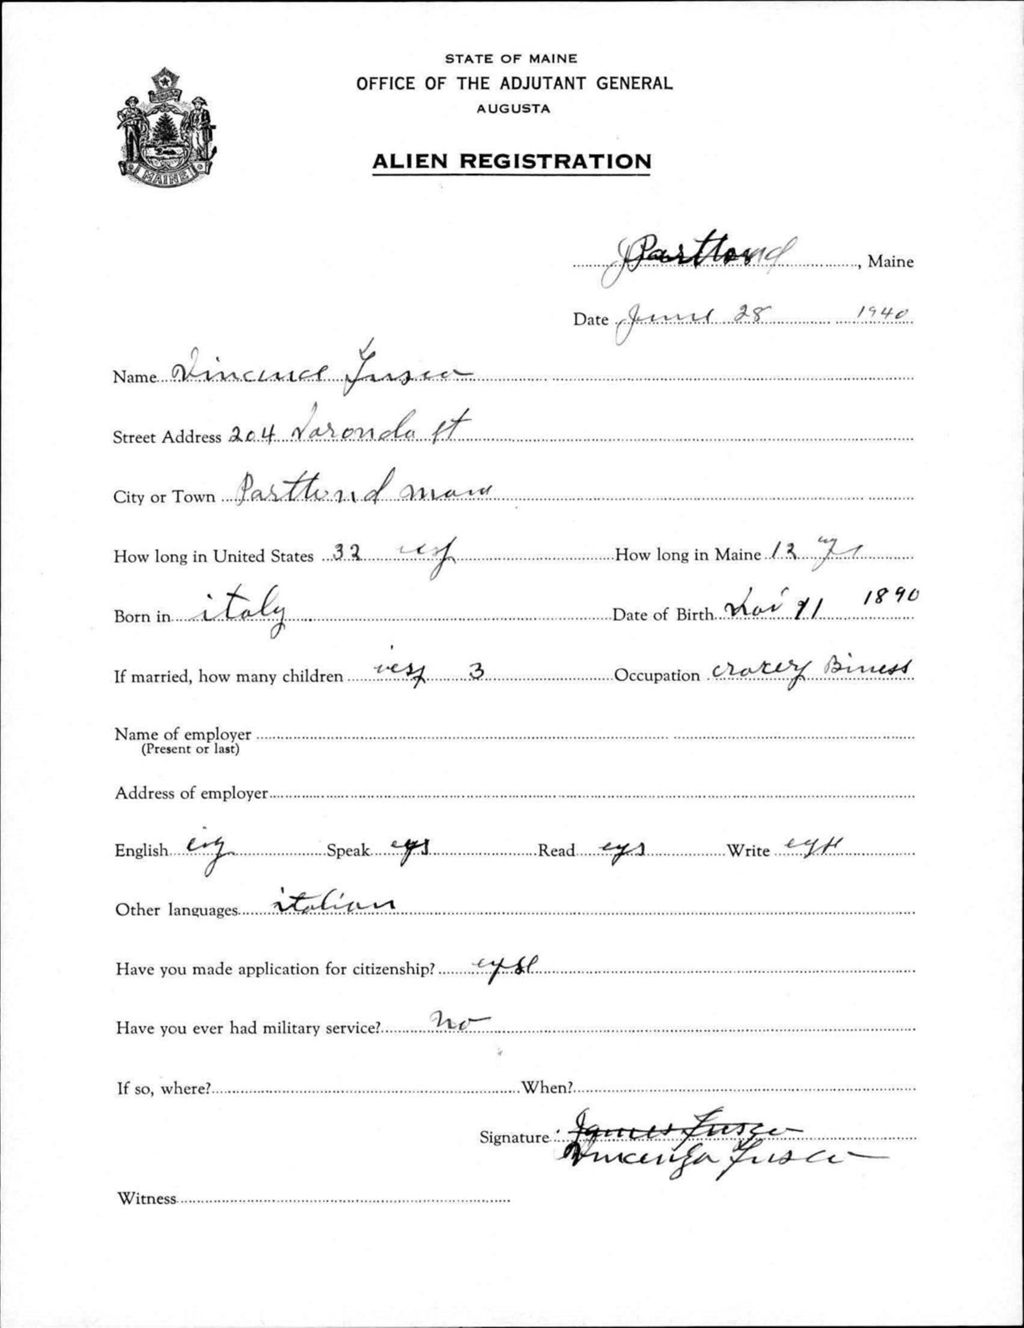 STATE OF MAINE
OFFICE OF THE ADJUTANT GENERAL
AUGUSTA
MAINE
ALIEN REGISTRATION
Portlond, Maine
Date June 28 1940
Name Fusco
Street Address 204 st
City or Town Portlond
How long in United States 32 How long in Maine 12
Born in italy Date of Birth Nov 11 1890
If married, how many children 3 Occupation Biness
Name of employer
(Present or last)
Address of employer
English Speak eys Read eys Write
Other languages italian
Have you made application for citizenship?
Have you ever had military service? No
If so, where? When?
Signature James Fusco
Vincenza Fusco
Witness